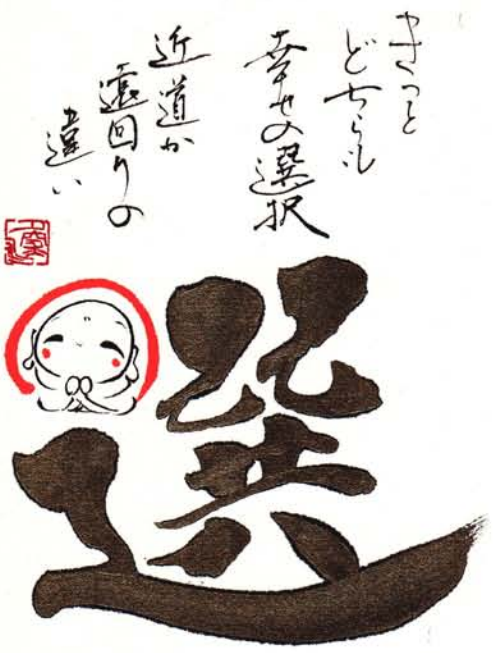 きっと
どちらも
幸せの選択
近道か
遠回りの
違い
選